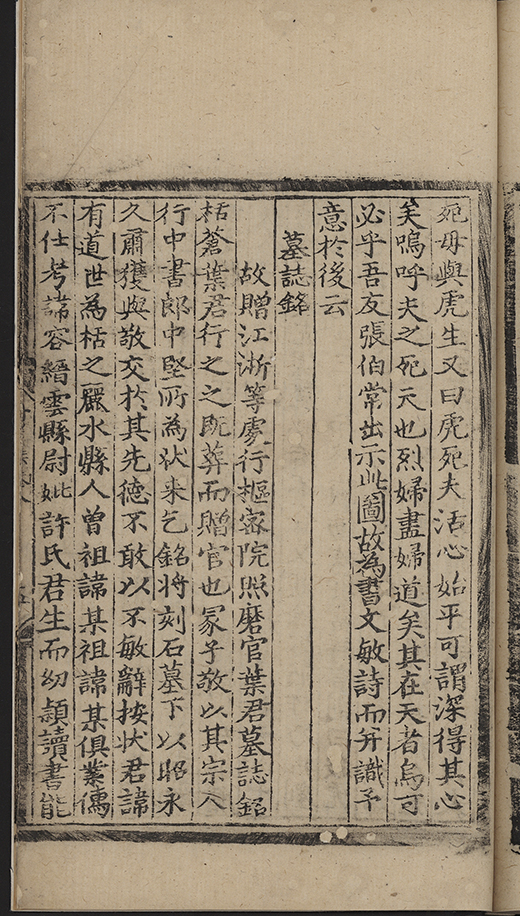 死毋與虎生又曰虎死夫活心始平可謂深得其心
矣嗚呼夫之死天也烈婦盡婦道矣其在天者烏可
必乎吾友張伯常出示此圖故為書文敏詩而并識予
意於後云
墓誌銘
故贈江浙等處行樞密院照磨官葉君墓誌銘
栝蒼葉君行之之既葬而贈官也冢子敬以其宗人
行中書郎中堅所為状来乞銘将刻石墓下以昭永
久肅獲與敬交於其先德不敢以不敏辭按状君諱
有道世為栝之麗水縣人曾祖諱某祖諱某俱業儒
不仕考諱容縉雲縣尉妣許氏君生而幼穎讀書能